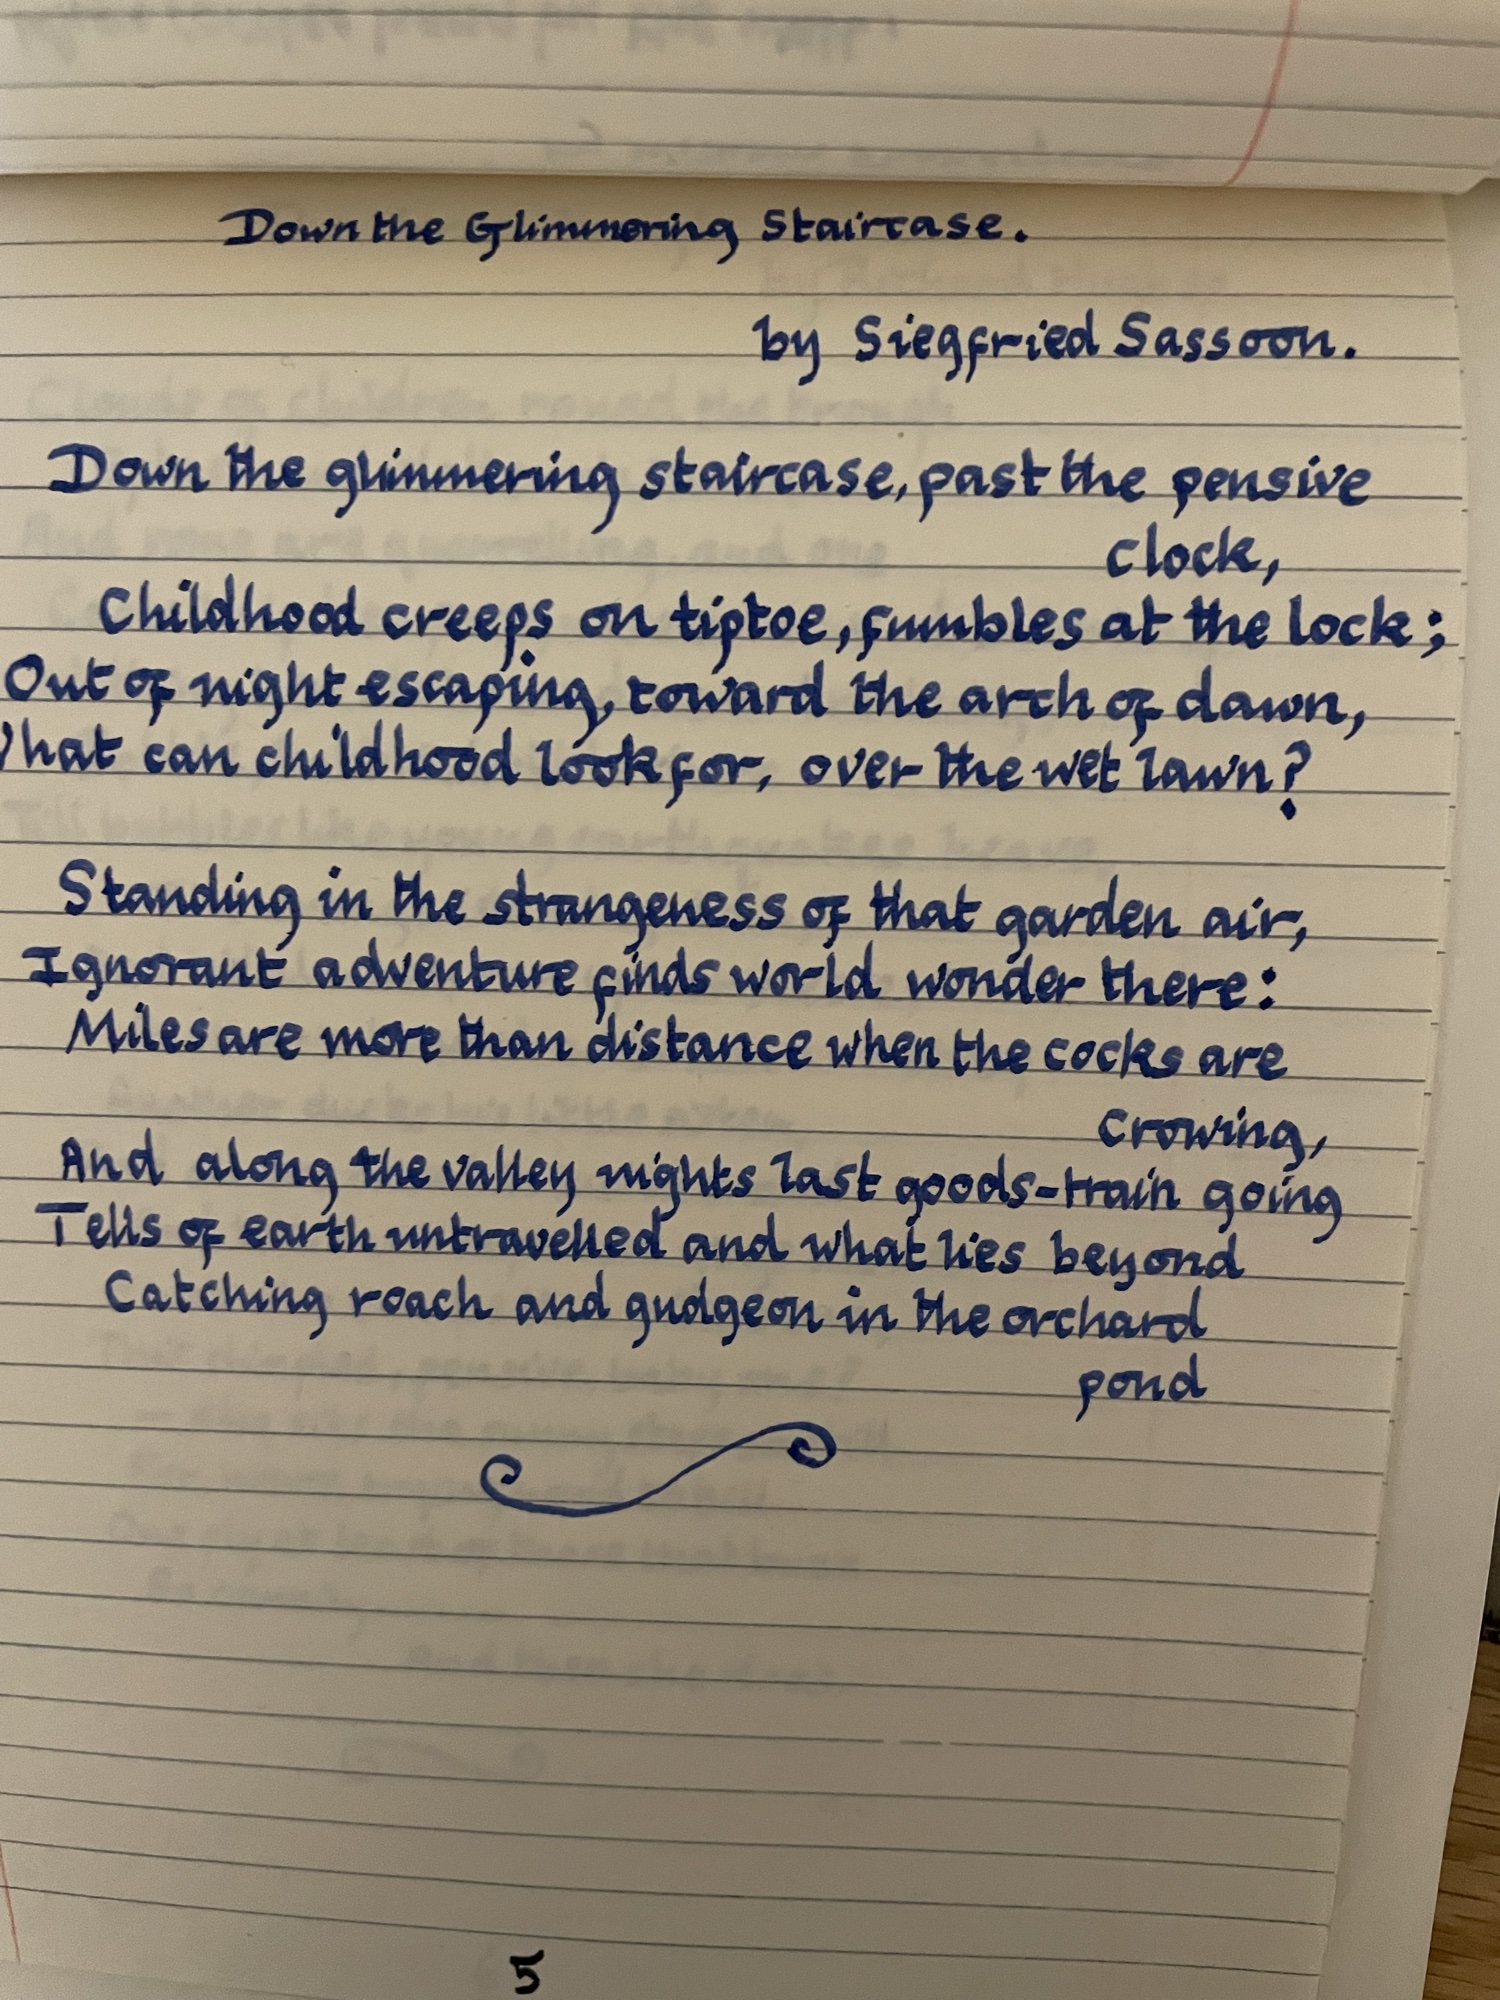 Down the Glimmering Staircase.
by Siegfried Sassoon.
Down the glimmering staircase, past the pensive
clock,
Childhood creeps on tiptoe, fumbles at the lock;
Out of night escaping, toward the arch of dawn,
What can childhood look for, over the wet lawn?
Standing in the strangeness of that garden air,
Ignorant adventure finds world wonder there:
Miles are more than distance when the cocks are
crowing,
And along the valley nights last goods-train going
Tells of earth untravelled and what lies beyond
Catching roach and gudgeon in the orchard
pond
5